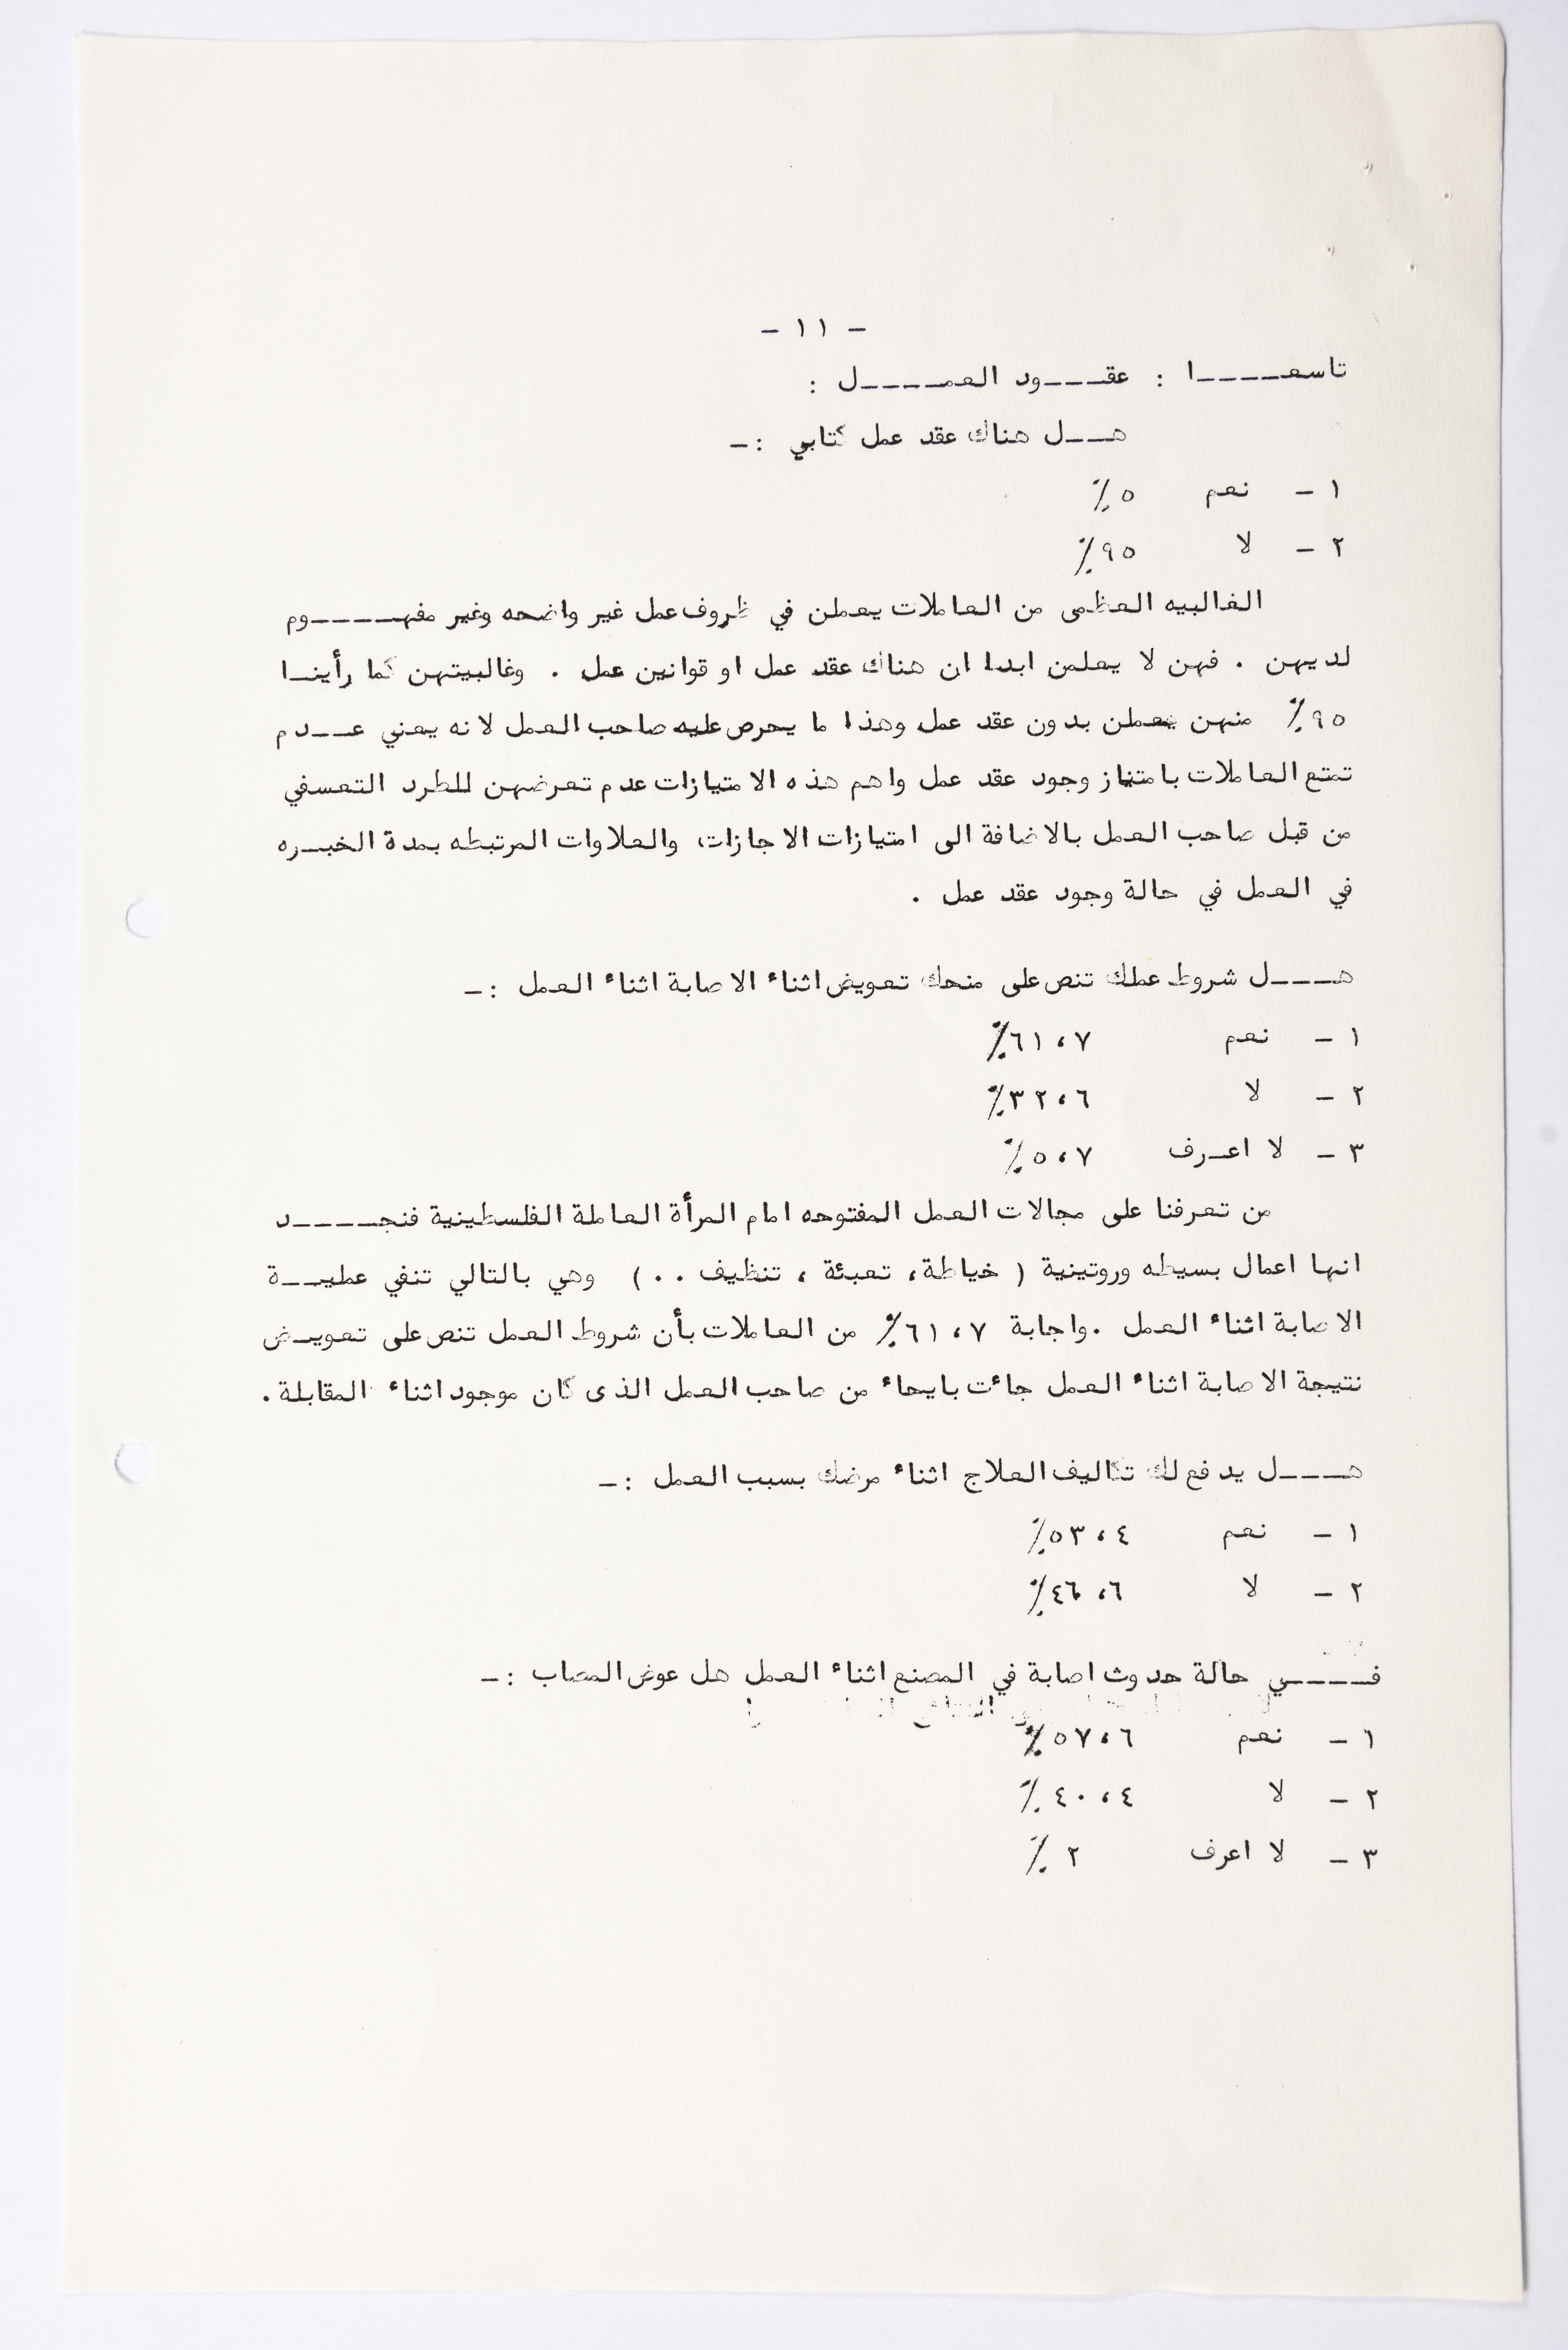 - ١١ -
تاسعـــــا : عقــــود العمـــــل :
هـــل هناك عقد عمل كتابي :-
١ - نعم ٥٪
٢ - لا ٩٥٪
الغالبيه العظمى من العاملات يعملن في ظروف عمل غير واضحه وغير مفهـــــوم
لديهن . فهن لا يعلمن ابدا ان هناك عقد عمل او قوانين عمل . وغالبيتهن كما رأينــا
٩٥٪ منهن يعملن بدون عقد عمل وهذا ما يحرص عليه صاحب العمل لانه يعني عـــدم
تمتع العاملات بامتناز وجود عقد عمل واهم هذه الامتيازات عدم تعرضهن للطرد التعسفي
من قبل صاحب العمل بالاضافة الى امتيازات الاجازات، والعلاوات المرتبطه بمدة الخبــره
في العمل في حالة وجود عقد عمل .
هــــل شروط عملك تنص على منحك تعويض اثناء الاصابة اثناء العمل :-
١ - نعم ٦١،٧٪
٢ - لا ٣٢،٦٪
٣ - لا اعـرف ٥،٧٪
من تعرفنا على مجالات العمل المفتوحه امام المرأة العاملة الفلسطينية فنجـــــد
انها اعمال بسيطه وروتينية ( خياطة، تعبئة ، تنظيف . . ) وهي بالتالي تنفي عمليــة
الاصابة اثناء العمل . واجابة ٦١،٧٪ من العاملات بأن شروط العمل تنص على تعويـض
نتيجة الاصابة اثناء العمل جاءت بايحاء من صاحب العمل الذى كان موجود اثناء المقابلة .
هــــل يدفع لك تكاليف العلاج اثناء مرضك بسبب العمل :-
١ - نعم ٥٣،٤٪
٢ - لا ٤٦،٦٪
فــــــي حالة حدوث اصابة في المصنع اثناء العمل هل عوض المصاب :-
١ - نعم ٥٧،٦٪
٢ - لا ٤٠،٤٪
٣ - لا اعرف ٢ ٪